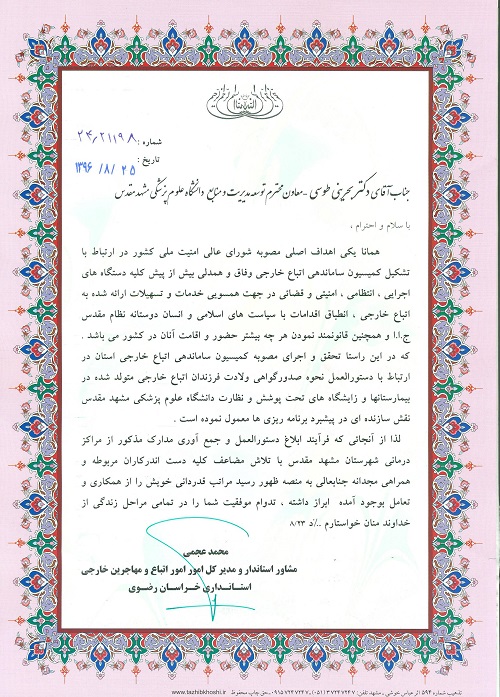 شماره: ۲۴/۲۱۱۹۸
تاریخ: ۱۳۹۶/۸/۲۵
جناب آقای دکتر بحرینی طوسی - معاون محترم توسعه مدیریت و منابع دانشگاه علوم پزشکی مشهد مقدس
با سلام و احترام ،
همانا یکی اهداف اصلی مصوبه شورای عالی امنیت ملی کشور در ارتباط با
تشکیل کمیسیون ساماندهی اتباع خارجی وفاق و همدلی بیش از پیش کلیه دستگاه های
اجرایی ، انتظامی ، امنیتی و قضائی در جهت همسویی خدمات و تسهیلات ارائه شده به
اتباع خارجی ، انطباق اقدامات با سیاست های اسلامی و انسان دوستانه نظام مقدس
ج.ا.ا و همچنین قانونمند نمودن هر چه بیشتر حضور و اقامت آنان در کشور می باشد .
که در این راستا تحقق و اجرای مصوبه کمیسیون ساماندهی اتباع خارجی استان در
ارتباط با دستورالعمل نحوه صدورگواهی ولادت فرزندان اتباع خارجی متولد شده در
بیمارستانها و زایشگاه های تحت پوشش و نظارت دانشگاه علوم پزشکی مشهد مقدس
نقش سازنده ای در پیشبرد برنامه ریزی ها معمول نموده است .
لذا از آنجائی که فرآیند ابلاغ دستورالعمل و جمع آوری مدارک مذکور از مراکز
درمانی شهرستان مشهد مقدس با تلاش مضاعف کلیه دست اندرکاران مربوطه و
همراهی مجدانه جنابعالی به منصه ظهور رسید مراتب قدردانی خویش را از همکاری و
تعامل بوجود آمده ابراز داشته ، تداوم موفقیت شما را در تمامی مراحل زندگی از
خداوند منان خواستارم ../د ۸/۲۳
محمد عجمی
مشاور استاندار و مدیر کل امور اتباع و مهاجرین خارجی
استانداری خراسان رضوی
تذهیب شماره ۵۹۴ اثر عباس خوشی ـ مشهد تلفن: ۳۷۲۴۷۲۴۷ (۰۵۱) ـ ۰۹۱۵۷۲۴۷۲۴۷ ـ حق چاپ محفوظ www.tazhibkhoshi.ir